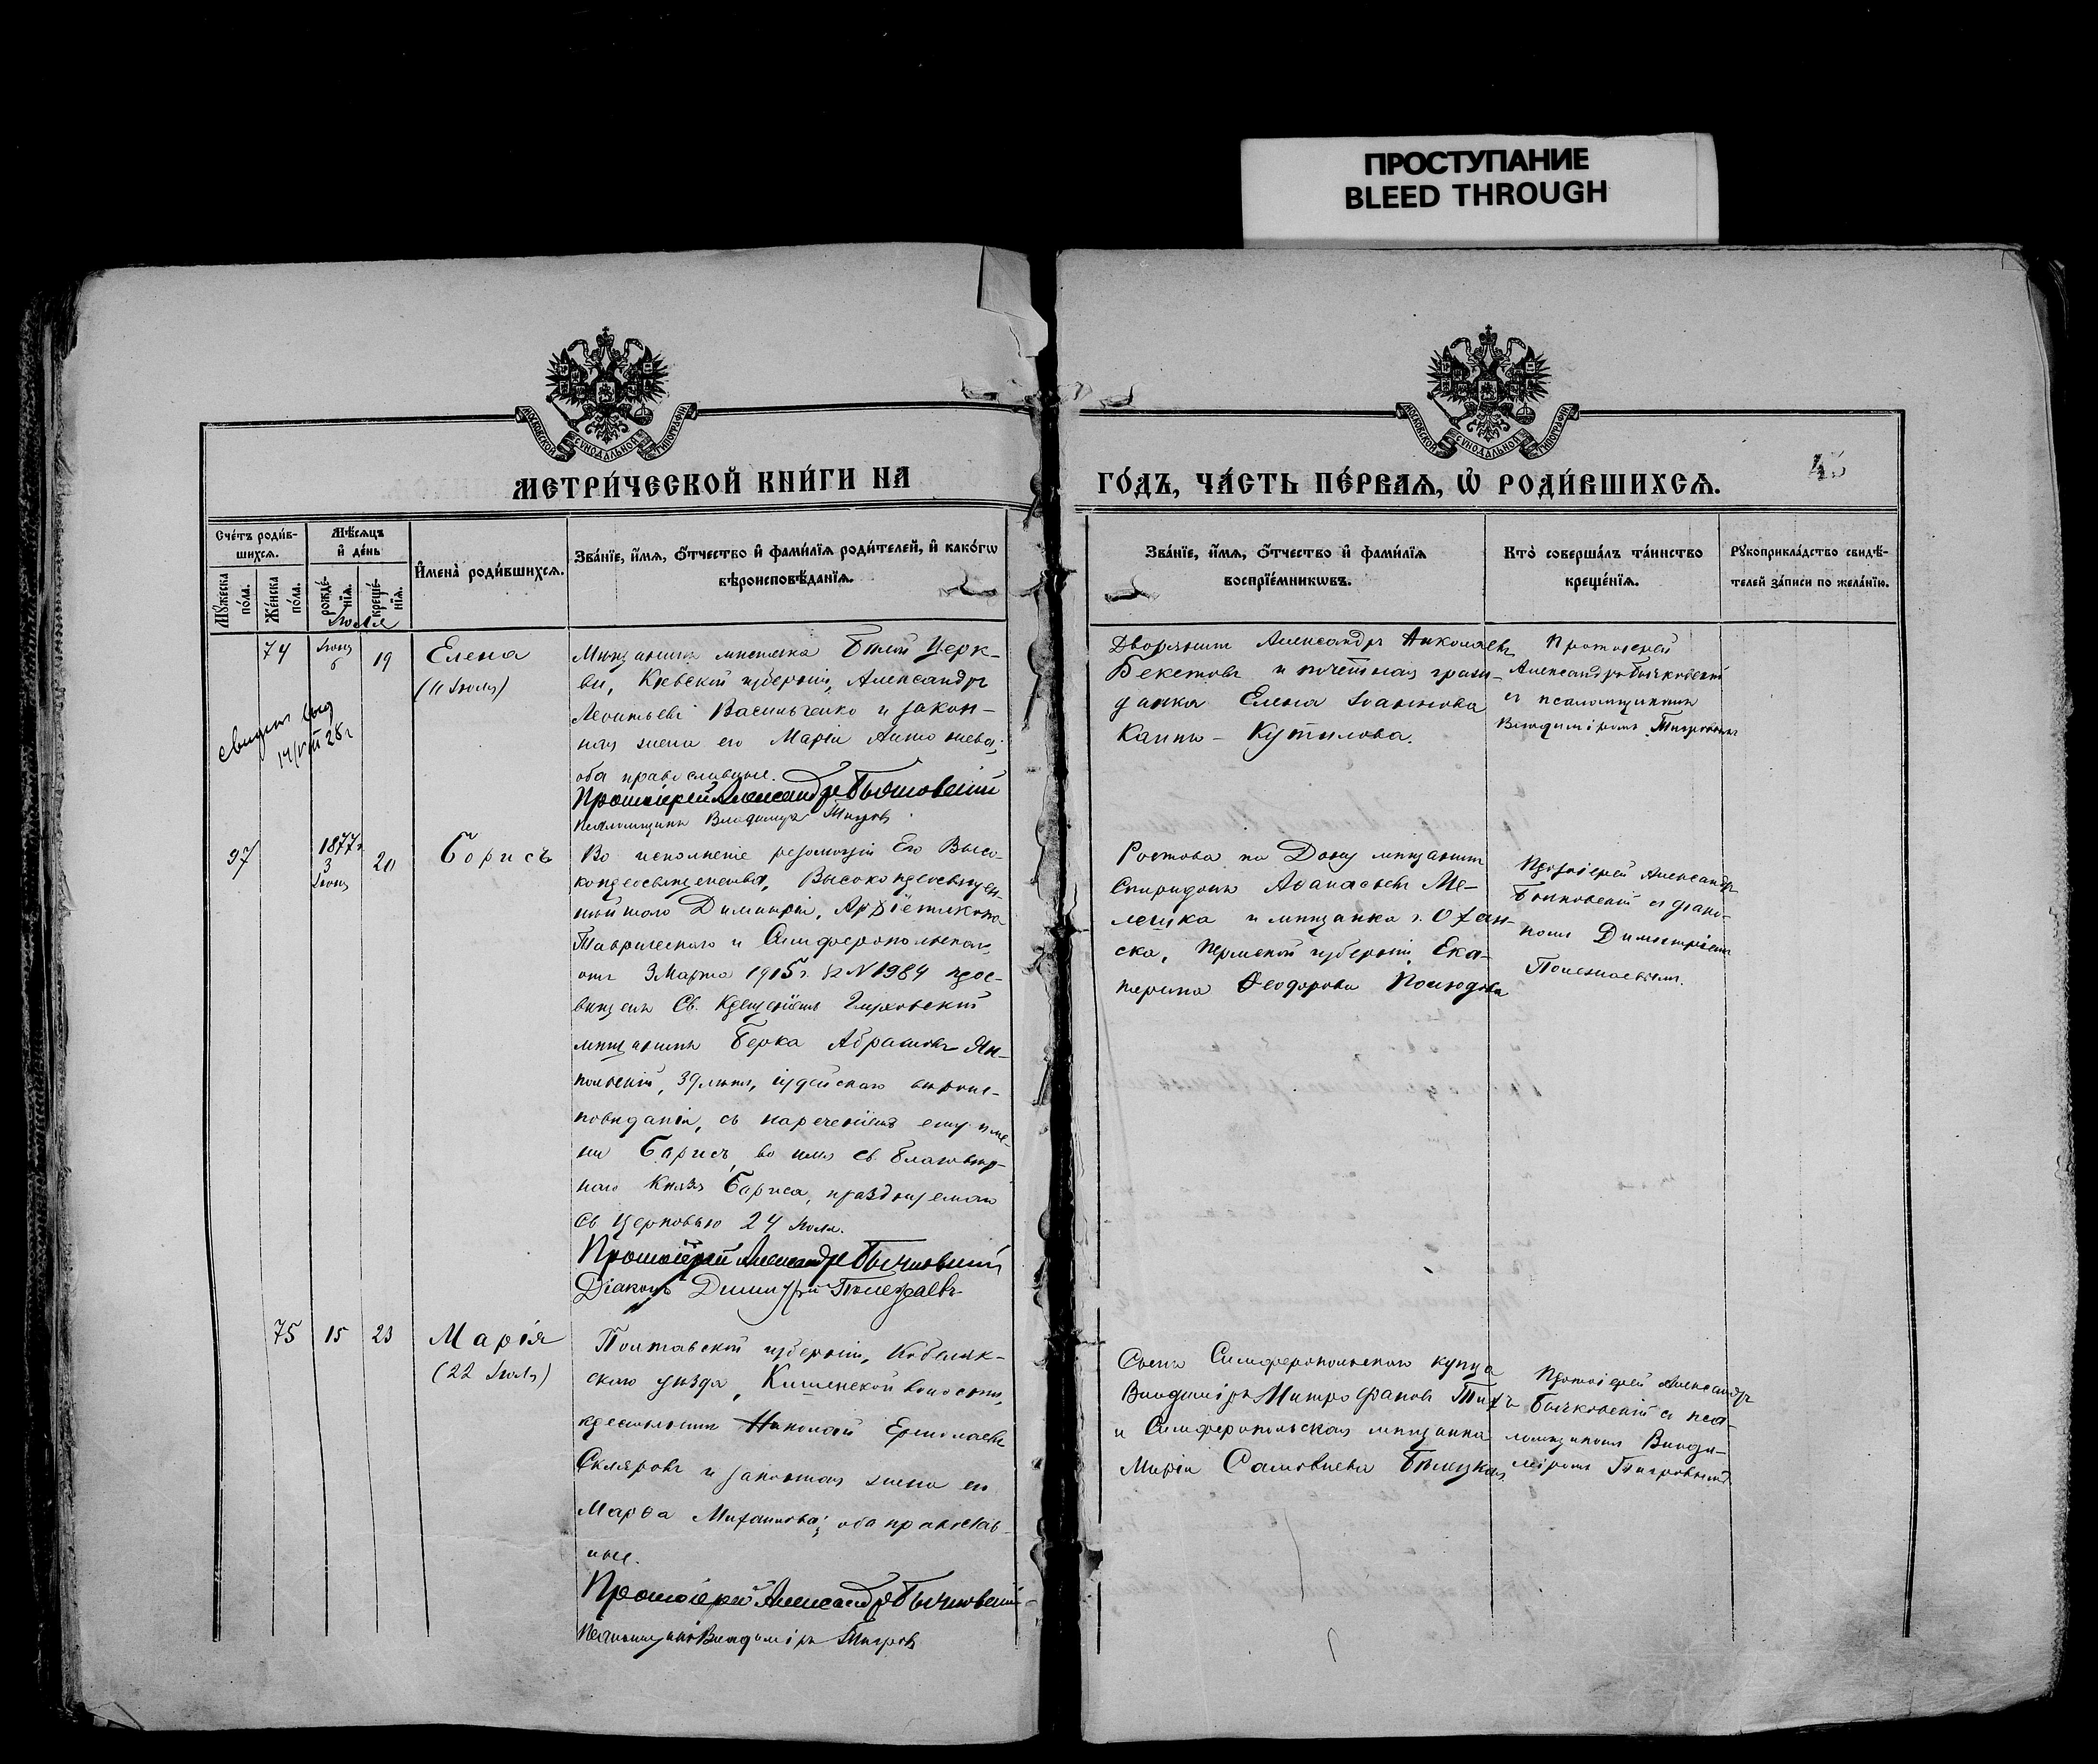 ПРОСТУПАНИЕ
BLEED THROUGH
МОСКОВСКОЙ СѴНОДАЛЬНОЙ ТИПОГРАФІИ
МОСКОВСКОЙ СѴНОДАЛЬНОЙ ТИПОГРАФІИ
МЕТРИ́ЧЕСКОЙ КНИ́ГИ НА
ГО́ДЪ, ЧА́СТЬ ПЕ́РВАѦ, Ѽ РОДИ́ВШИХСѦ.
Сче́тъ роди́в-
шихсѧ.
Мѣ́сѧцъ
и҆ де́нь
Мꙋ́жеска по́ла.
Же́нска по́ла.
рожде́-нїѧ.
креще́-нїѧ.
И҆мена̀ роди́вшихсѧ.
Зва́нїе, и҆́мѧ, ѻ҆́тчество и҆ фами́лїѧ роди́телей, и҆ како́гѡ
вѣроисповѣ́данїѧ.
Зва́нїе, и҆́мѧ, ѻ҆́тчество и҆ фами́лїѧ
воспрїе́мникѡвъ.
Кто̀ соверша́лъ та́инство
креще́нїѧ.
Рꙋкоприкла́дство свидѣ́-
телей за́писи по жела́нїю.
Іюля
74
Іюня
6
19
Елена
(11 Іюля)
14/VIII 28 г
Мѣщанинъ мѣстечка Бѣлой Церк-
ви, Кіевской губерніи, Александръ
Леонтьевъ Васильченко и закон-
ная жена его Марія Антоніева;
оба православные.
Протоіерей Александръ Бычковскій
Псаломщикъ Владиміръ Тигровъ
Дворянинъ Александръ Николаевъ
Бекетовъ и почетная граж-
данка Елена Іоаннова
Каппъ-Кутилова.
Протоіерей
Александръ Бычковскій
съ псаломщикомъ
Владиміромъ Тигровымъ
37
1877 г
3
Іюня
20
Борисъ
Во исполненіе резолюціи Его Высо-
копреосвященства, Высокопреосвящен-
нѣйшаго Димитрія, Архіепископа
Таврическаго и Симферопольскаго,
отъ 3 Марта 1915 г. за N 1984 прос-
вѣщенъ Св. Крещеніемъ Глуховскій
мѣщанинъ Берка Абрамовъ Ян-
польскій, 39 лѣтъ, іудейскаго вѣроис-
повѣданія, съ нареченіемъ ему име-
ни Борисъ, во имя св. благовѣр-
наго Князя Бориса, празднуемаго
Св. Церковью 24 Іюля.
Протоіерей Александръ Бычковскій
Діаконъ Димитрій Полежаевъ
Ростова на Дону мѣщанинъ
Спиридонъ Аѳанасьевъ Ме-
лешка и мѣщанка г. Охан-
ска, Пермской губерніи, Ека-
терина Ѳеодорова Полюдова
Протоіерей Александръ
Бычковскій съ діако-
номъ Димитріемъ
Полежаевымъ.
75
15
23
Марія
(22 Іюля)
Полтавской губерніи, Кобеляк-
скаго уѣзда, Кишенской волости,
крестьянинъ Николай Ермолаевъ
Скляровъ и законная жена его
Марѳа Михаилова; оба православ-
ные.
Протоіерей Александръ Бычковскій
Псаломщикъ Владиміръ Тигровъ
Сынъ Симферопольскаго купца
Владиміръ Митрофановъ Тихъ
и Симферопольская мѣщанка
Марія Самойлова Бѣлецкая
Протоіерей Александръ
Бычковскій съ пса-
ломщикомъ Влади-
міромъ Тигровымъ